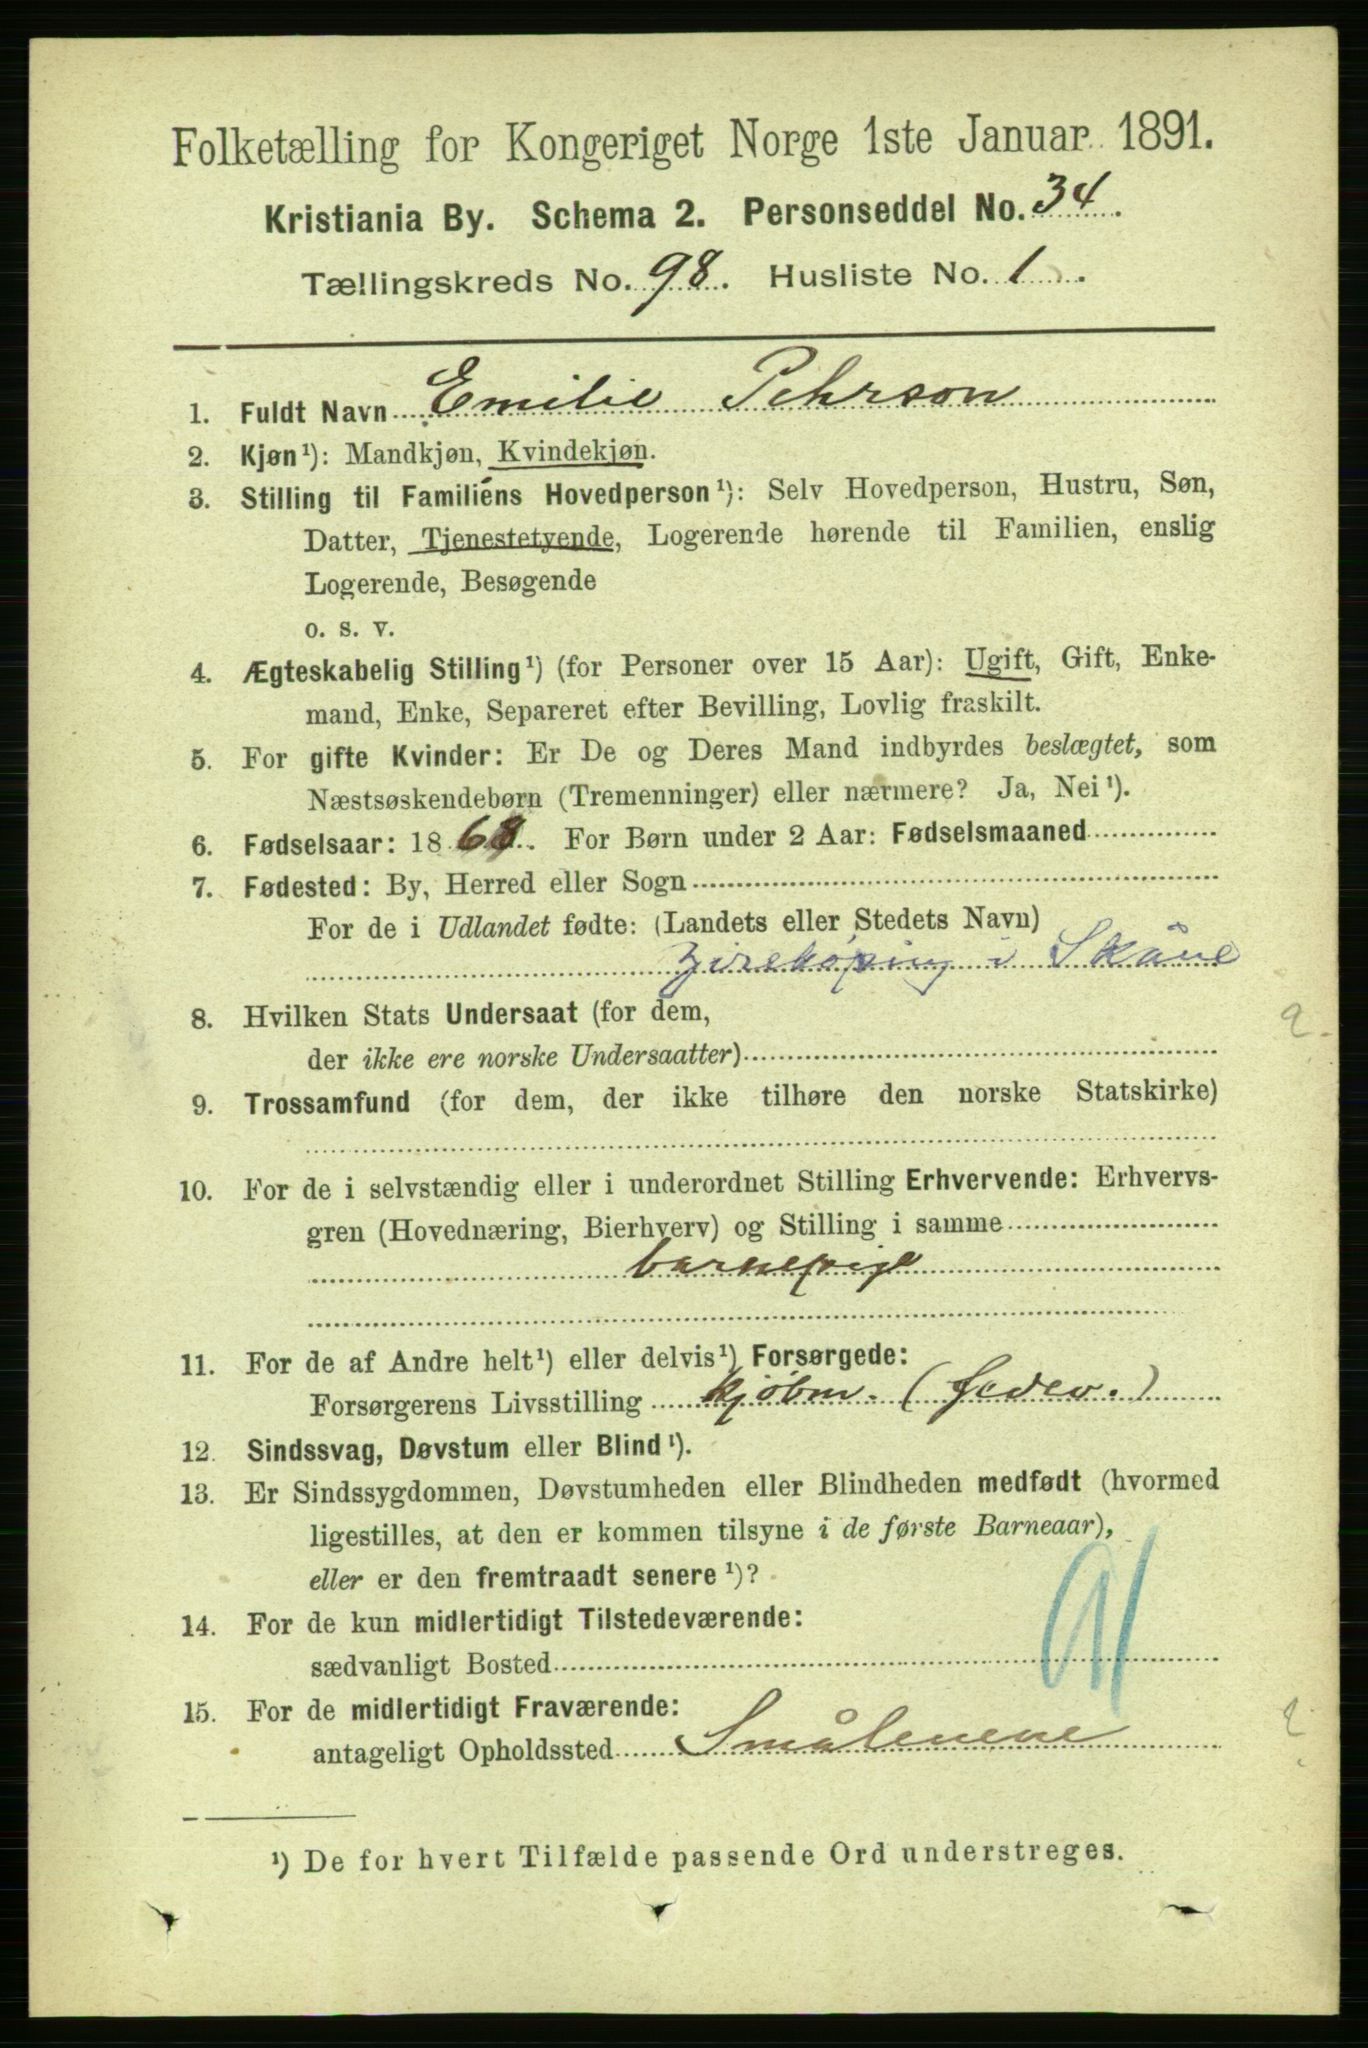 Folketælling for Kongeriget Norge 1ste Januar 1891.
Kristiania By. Schema 2. Personseddel No. 34.
Tællingskreds No. 98. Husliste No. 1.
1. Fuldt Navn Emilie Pehrson
2. Kjøn¹): Mandkjøn, Kvindekjøn.
3. Stilling til Familiens Hovedperson¹): Selv Hovedperson, Hustru, Søn,
Datter, Tjenestetyende, Logerende hørende til Familien, enslig
Logerende, Besøgende
o. s. v.
4. Ægteskabelig Stilling¹) (for Personer over 15 Aar): Ugift, Gift, Enke-
mand, Enke, Separeret efter Bevilling, Lovlig fraskilt.
5. For gifte Kvinder: Er De og Deres Mand indbyrdes beslægtet, som
Næstsøskendebørn (Tremenninger) eller nærmere? Ja, Nei¹).
6. Fødselsaar: 18 6 . For Børn under 2 Aar: Fødselsmaaned
7. Fødested: By, Herred eller Sogn
For de i Udlandet fødte: (Landets eller Stedets Navn)
i Skåne
8. Hvilken Stats Undersaat (for dem,
der ikke ere norske Undersaatter)
9. Trossamfund (for dem, der ikke tilhøre den norske Statskirke)
10. For de i selvstændig eller i underordnet Stilling Erhvervende: Erhvervs-
gren (Hovednæring, Bierhverv) og Stilling i samme
barnepige
11. For de af Andre helt¹) eller delvis¹) Forsørgede:
Forsørgerens Livsstilling kjøbm. (fader.)
12. Sindssvag, Døvstum eller Blind¹).
13. Er Sindssygdommen, Døvstumheden eller Blindheden medfødt (hvormed
ligestilles, at den er kommen tilsyne i de første Barneaar),
eller er den fremtraadt senere¹)?
14. For de kun midlertidigt Tilstedeværende:
sædvanligt Bosted
91
15. For de midlertidigt Fraværende:
antageligt Opholdssted Smålenene
¹) De for hvert Tilfælde passende Ord understreges.